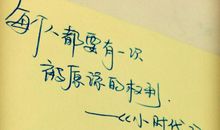 每个人都要有一次
被原谅的权利.
——《小时代》